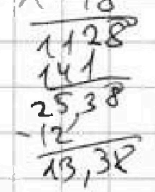 × 18
1128
141
25,38
- 12
13,38